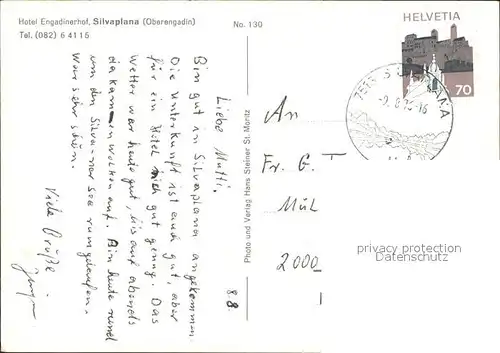 Hotel Engadinerhof, Silvaplana (Oberengadin)
Tel. (082) 6 41 15
No. 130
HELVETIA
70
7513 SILVAPLANA
-9.8.75-16
Photo und Verlag Hans Steiner St. Moritz
8.8
Liebe Mutti.
Bin gut in Silvaplana angekommen.
Die Unterkunft ist auch gut, aber
für ein Hotel nich gut genug. Das
Wetter war heute gut, bis auf abends
da kammen Wolken auf. Bin heute rund
um den Silva-nar See rumgelaufen.
War sehr schön.
Viele Grüße.
Jürgen
An
Fr. G. T
Mül
2000
privacy protection
Datenschutz